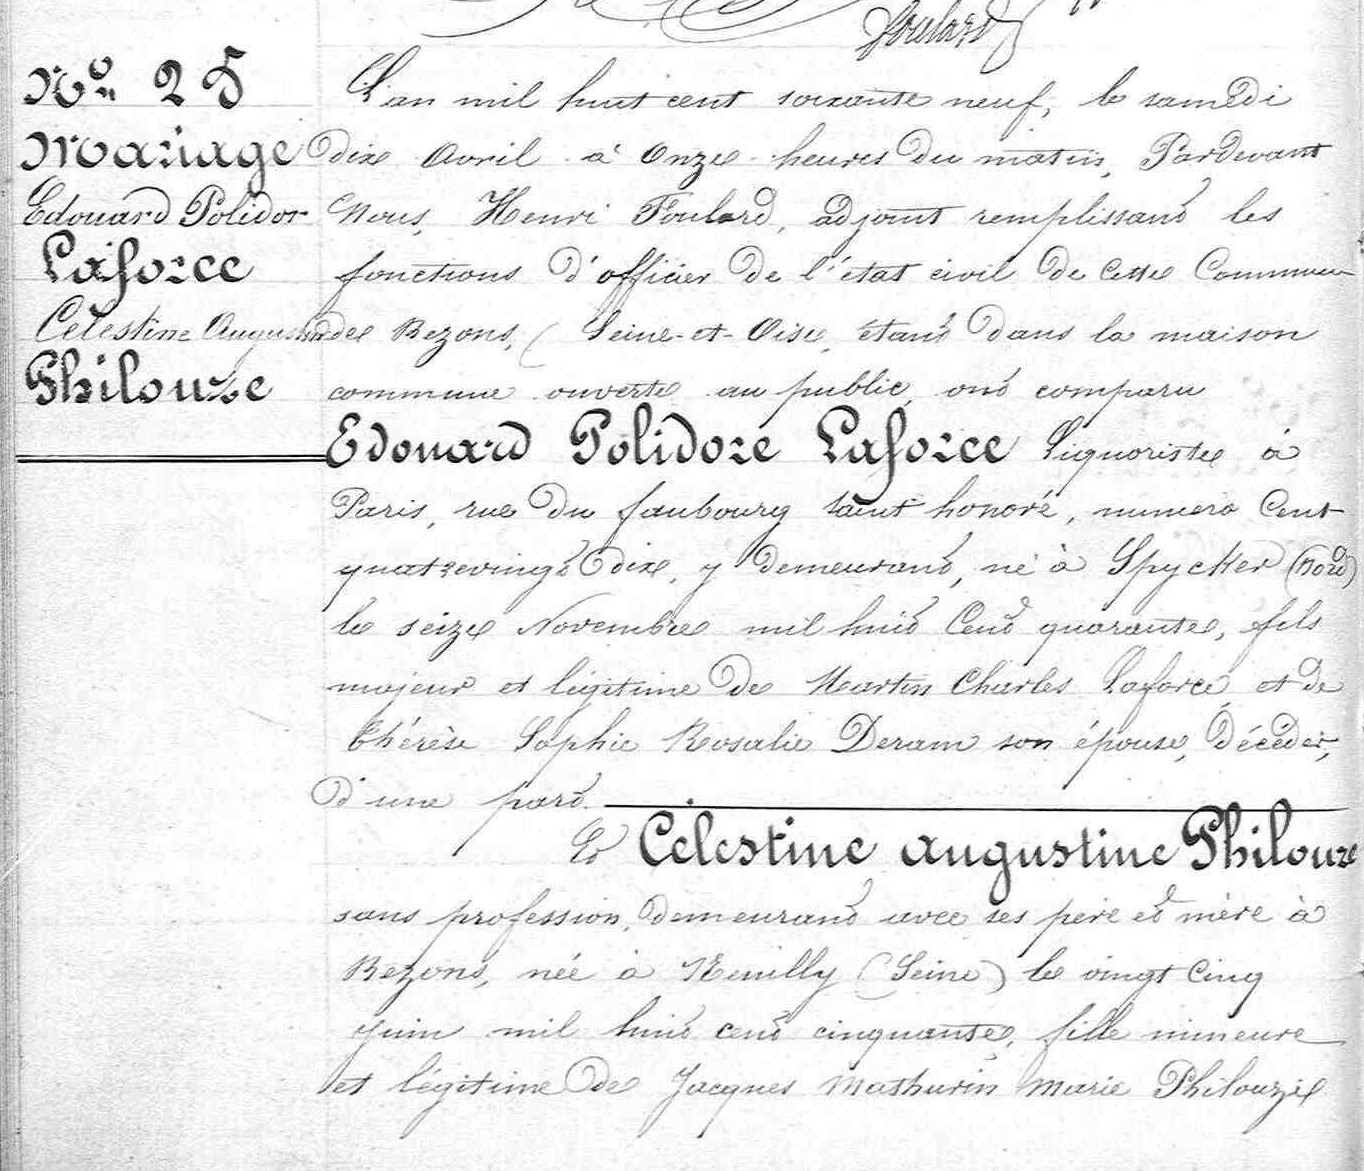 foulard
No 25
Mariage
Edouard Polidor
Laforce
Celestine Augustine
Philouze
L'an mil huit cent soixante neuf, le samedi
dix Avril à Onze heures du matin, Pardevant
Nous, Henri Foulard, adjoint remplissant les
fonctions d'officier de l'état civil de cette Commune
de Bezons, (Seine-et-Oise, étant dans la maison
commune ouverte au public, ont comparu
Edouard Polidore Laforce Liquoriste à
Paris, rue du faubourg saint honoré, numero Cent
quatrevingt dix, y demeurant, né à Spycker (Nord)
le seize Novembre mil huit Cent quarante, fils
majeur et légitime de Martin Charles Laforce et de
thérèse Sophie Rosalie Deram son épouse, décédés,
d'une part.
Et Célestine Augustine Philouze
sans profession, demeurant avec ses père et mère à
Bezons, née à Neuilly (Seine) le vingt Cinq
Juin mil huit cent cinquante, fille mineure
et légitime de Jacques Mathurin Marie Philouze